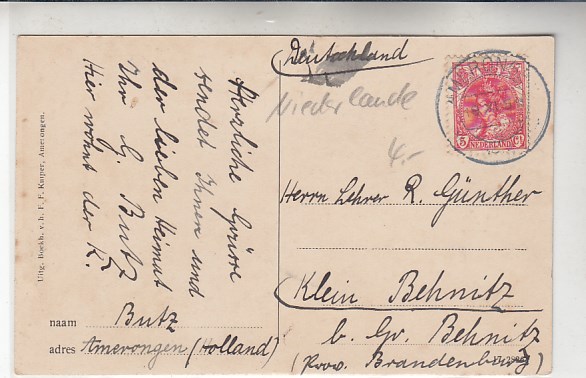 Herzliche Grüsse
sendet Ihnen und
der lieben Heimat
Ihr G. Butz
Hier wohnt der K.
Uitg. Boekh. v.h. F. F. Kuiper, Amerongen.
naam Butz
adres Amerongen (Holland)
Deutschland
Niederlande
4.-
AMERONGEN
5 NEDERLAND Ct
Herrn Lehrer R. Günther
Klein Behnitz
b. Gr. Behnitz
(Prov. Brandenburg)